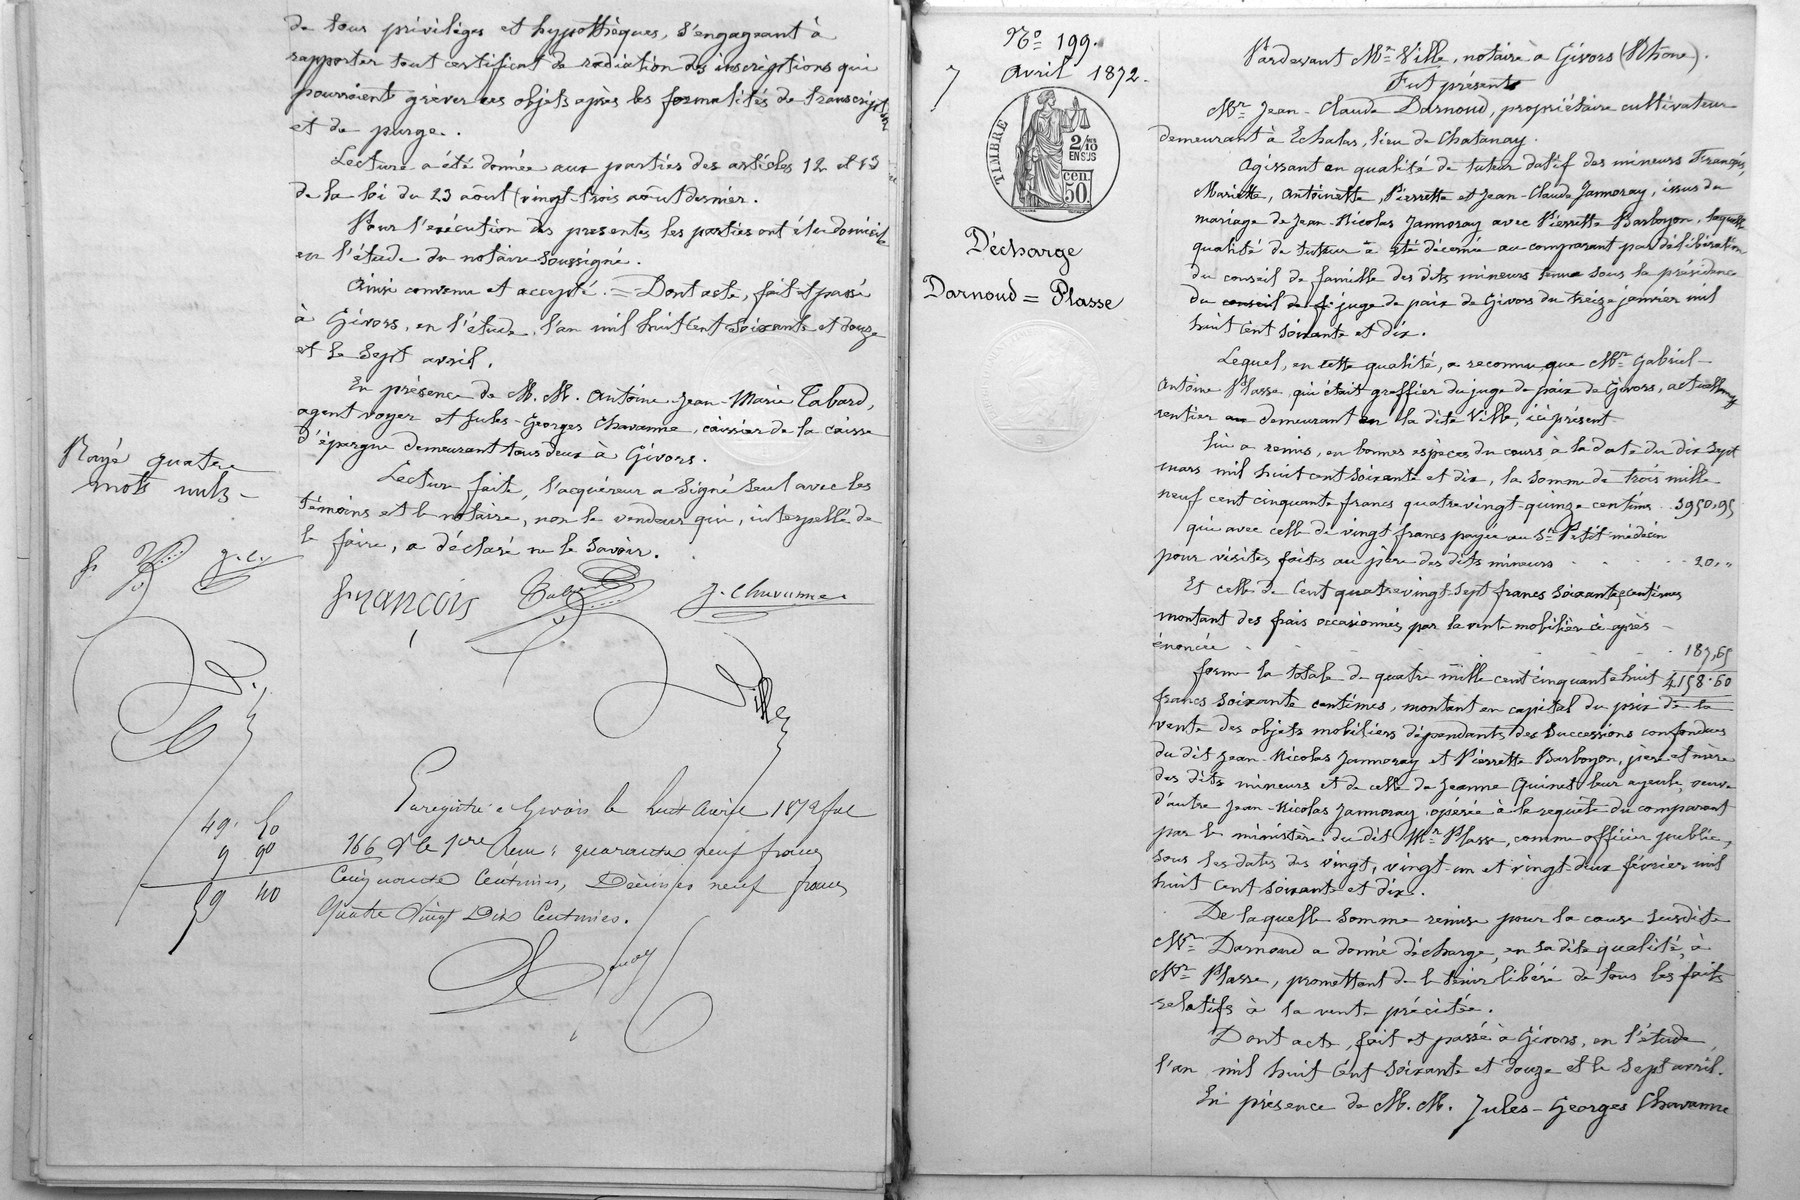 de tous privilèges et hypothèques, s'engageant à
rapporter tout certificat de radiation des inscriptions qui
pourraient grever ces objets après les formalités de transcription
et de purge.
Lecture a été donnée aux parties des articles 12 et 13
de la loi du 23 août (vingt-trois août dernier.
Pour l'exécution des présentes les parties ont élu domicile
en l'étude du notaire soussigné.
Ainsi convenu et accepté. = Dont acte, fait et passé
à Givors, en l'étude, l'an mil huit cent soixante et douze
et le sept avril.
En présence de M. M. Antoine-Jean-Marie Tabard,
agent voyer et Jules-Georges Chavanne, caissier de la caisse
d'épargne demeurant tous deux à Givors.
Lecture faite, l'acquéreur a signé seul avec les
témoins et le notaire, non le vendeur qui, interpellé de
le faire, a déclaré ne le savoir.
Rayé quatre
mots nuls -
J. C.
françois J. Chavanne
Ville
Enregistré à Givors le huit avril 1872 fol
166 Vo Ce 1ere Reçu: quarante neuf francs
Cinquante Centimes, Décimes neuf francs
Quatre Vingt Dix Centimes.
49. 50
9 90
59 40
No 199.
7 avril 1872.
TIMBRE
2/10
EN SUS
50 cen.
Décharge
Darnoud = Plasse
Pardevant Me Ville, notaire à Givors (Rhône).
Fut présent
Mr Jean-Claude Darnoud, propriétaire cultivateur
demeurant à Echalas, lieu de Chatanay.
Agissant en qualité de tuteur datif des mineurs François,
Mariette, Antoinette, Pierrette et Jean-Claude Jannoray, issus du
mariage de Jean-Nicolas Jannoray avec Pierrette Barboyon, laquelle
qualité de tuteur a été décernée au comparant par délibération
du conseil de famille des dits mineurs tenue sous la présidence
du conseil de f juge de paix de Givors du treize janvier mil
huit cent soixante et dix.
Lequel, en cette qualité, a reconnu que Mr Gabriel-
Antoine Plasse, qui était greffier du juge de paix de Givors, actuellement
rentier demeurant en la dite Ville, ici présent
lui a remis, en bonnes espèces du cours à la date du dix sept
mars mil huit cent soixante et dix, la somme de trois mille
neuf cent cinquante francs quatre-vingt-quinze centimes . 3950,95
qui avec celle de vingt francs payée au Sr Petit médecin
pour visites faites au père des dits mineurs . . . . . 20,"
Et celle de Cent quatrevingt-sept francs soixante centimes
montant des frais occasionnés par la vente mobilière ci-après
énoncée . . . . . 187,65
forme la totale de quatre mille cent cinquante huit 4158.60
francs soixante centimes, montant en capital du prix de la
vente des objets mobiliers dépendants des successions confondues
du dit Jean-Nicolas Jannoray et Pierrette Barboyon, père et mère
des dits mineurs et de celle de Jeanne Quinet leur ayeule, veuve
d'autre Jean-Nicolas Jannoray, opérée à la requête du comparant
par le ministère du dit Mr Plasse, comme officier public,
sous les dates des vingt, vingt-un et vingt-deux février mil
huit cent soixante et dix.
De laquelle somme remise pour la cause susdite
Mr Darnoud a donné décharge, en sa dite qualité, à
Mr Plasse, promettant de le tenir libéré de tous les faits
relatifs à la vente précitée.
Dont acte, fait et passé à Givors, en l'étude,
l'an mil huit cent soixante et douze et le sept avril.
En présence de M. M. Jules-Georges Chavanne